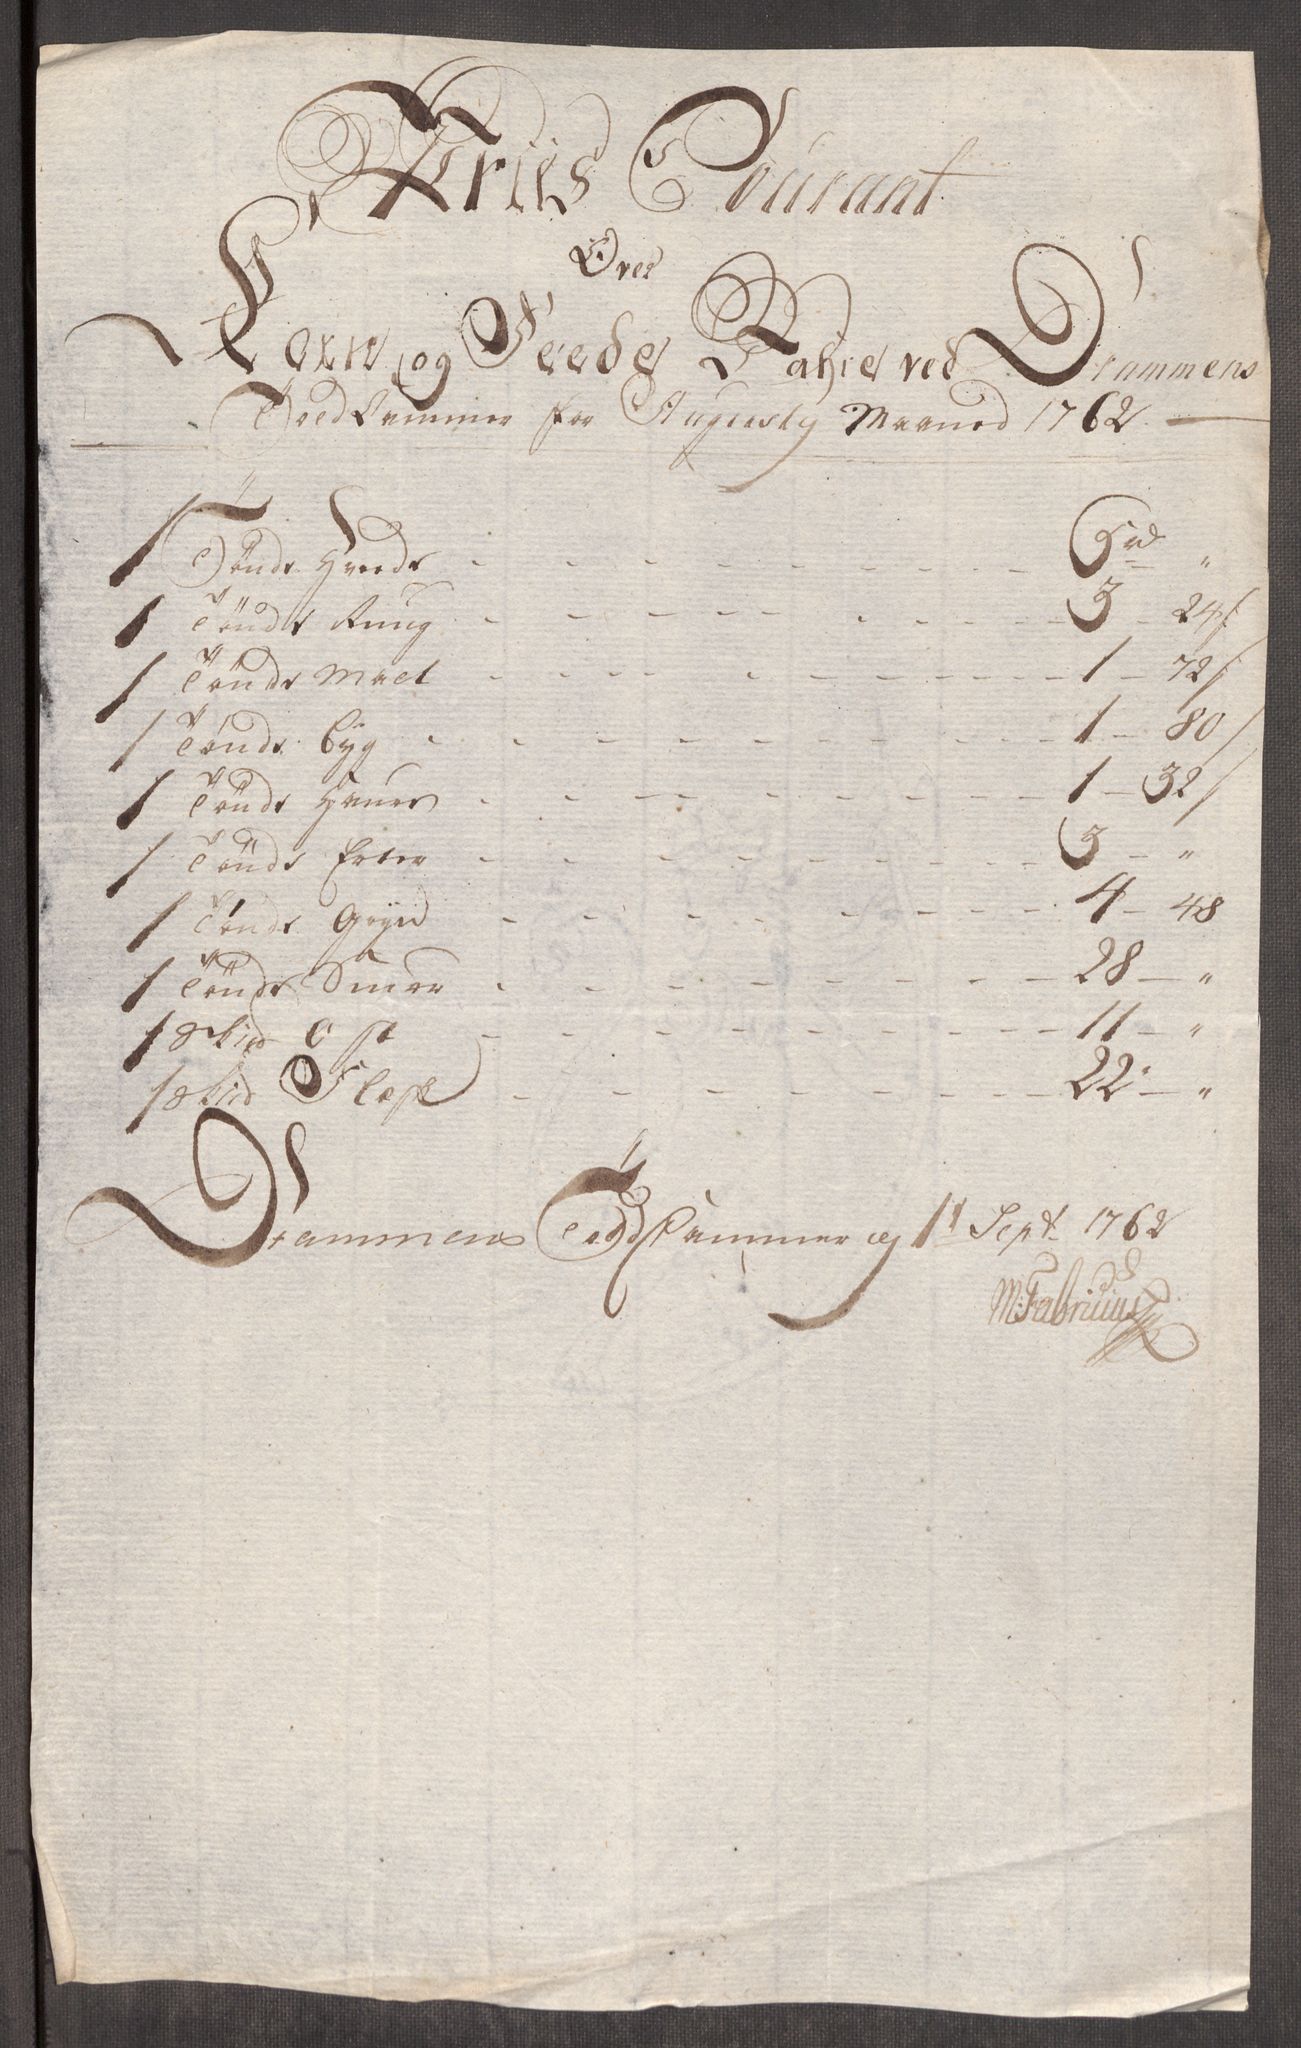 Priis Courant
Over
Korn og Feede Vahre ved Drammens
Toldkammer for Augusty Maaned 1762
1 Tönde Hvede - 5 rd "
1 Tönde Rug - 3 - 24 s
1 Tönde Malt - 1 - 72 s
1 Tönde Byg - 1 - 80 s
1 Tönde Haver - 1 - 32 s
1 Tönde Erter - 3 - "
1 Tönde Gryn - 4 - 48
1 Tönde Smör - 28 - "
1 Skid Ost - 11 - "
1 Skid Flesk - 22 - "
Drammens Toldkammer 1 Sept 1762
M: Fabricius